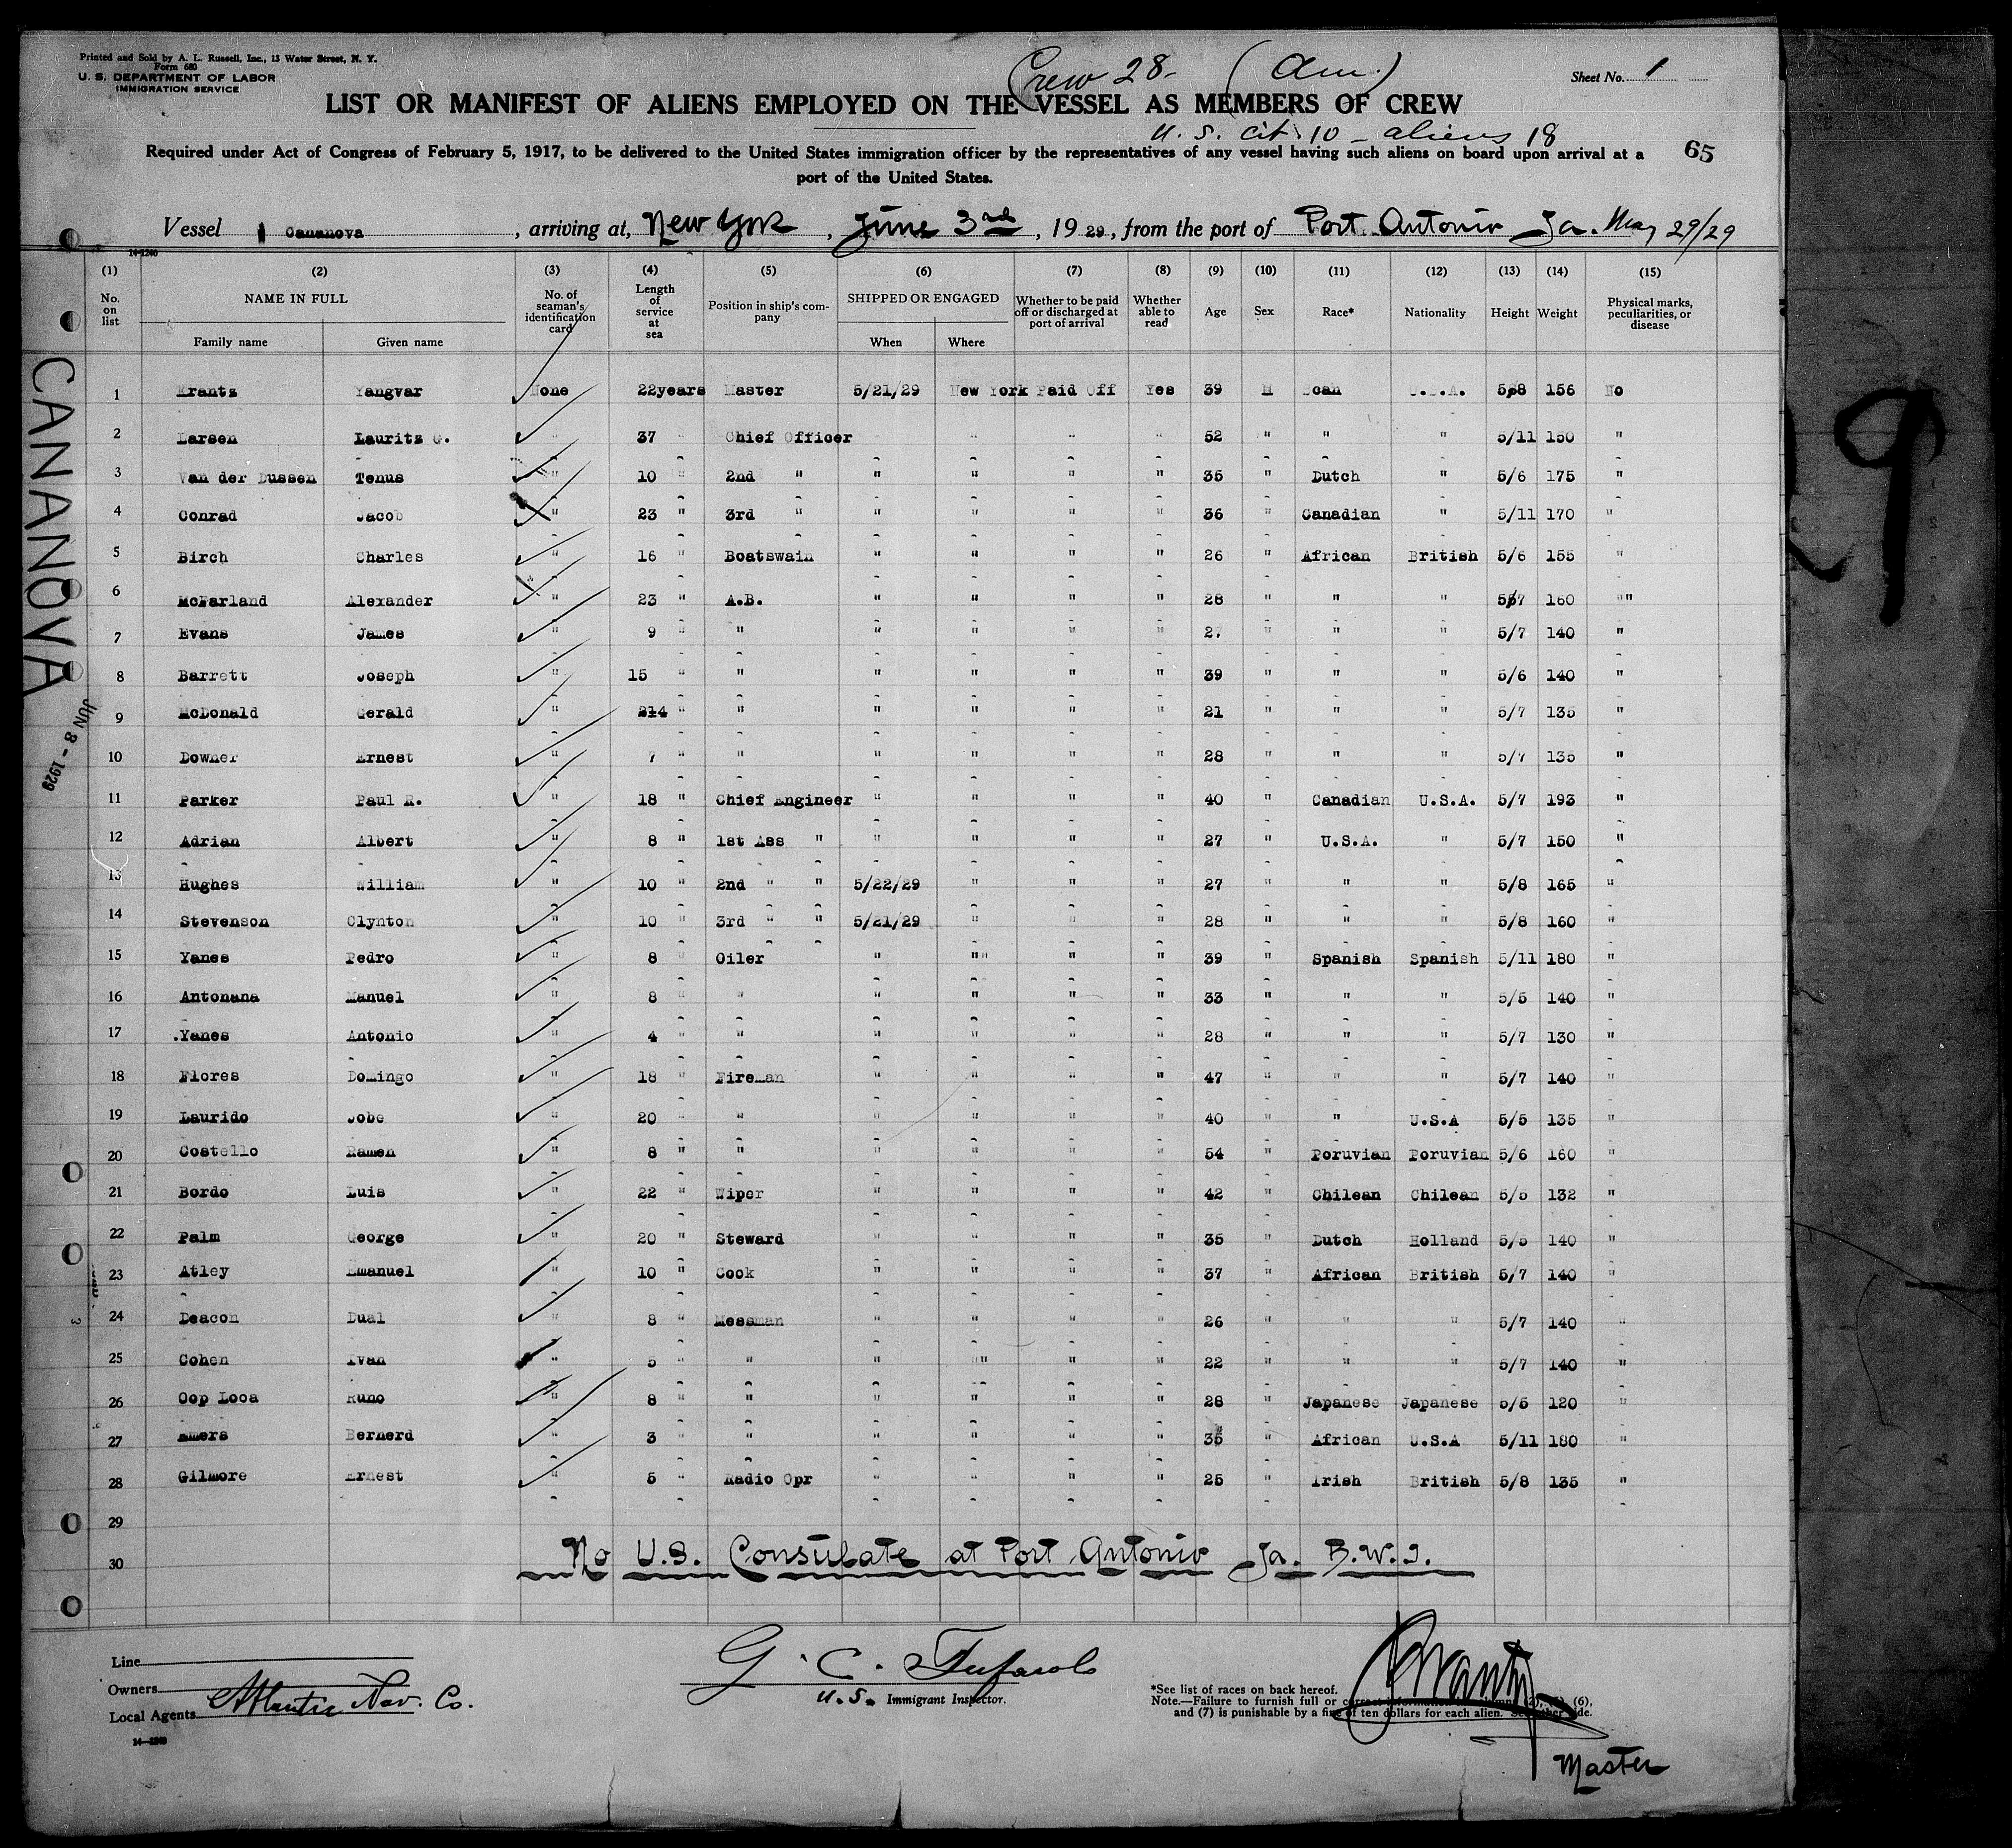 Printed and Sold by A. L. Russell, Inc., 13 Water Street, N. Y.
Form 680
U. S. DEPARTMENT OF LABOR
IMMIGRATION SERVICE
Crew 28- (Am.)
Sheet No. 1
LIST OR MANIFEST OF ALIENS EMPLOYED ON THE VESSEL AS MEMBERS OF CREW
U. S. cit. 10 - aliens 18
Required under Act of Congress of February 5, 1917, to be delivered to the United States immigration officer by the representatives of any vessel having such aliens on board upon arrival at a
port of the United States.
65
Vessel Cananova, arriving at, New York, June 3rd, 1929, from the port of Port Antonio Ja. May 29/29
14-1240
(1) (2) (3) (4) (5) (6) (7) (8) (9) (10) (11) (12) (13) (14) (15)
No. on list NAME IN FULL Family name Given name No. of seaman's identification card Length of service at sea Position in ship's company SHIPPED OR ENGAGED When Where Whether to be paid off or discharged at port of arrival Whether able to read Age Sex Race* Nationality Height Weight Physical marks, peculiarities, or disease
1 Krantz Yangvar None 22years Master 5/21/29 New York Paid Off Yes 39 M Scan U.S.A. 5/8 156 No
2 Larsen Lauritz G. " 37 " Chief Officer " " " 52 " " " 5/11 150 "
3 Van der Dussen Tenus " 10 " 2nd " " " " " 35 " Dutch " 5/6 175 "
4 Conrad Jacob " 23 " 3rd " " " " " 36 " Canadian " 5/11 170 "
5 Birch Charles " 16 " Boatswain " " " " 26 " African British 5/6 155 "
6 McFarland Alexander " 23 " A.B. " " " " 28 " " " 5/7 160 ""
7 Evans James " 9 " " " " " " 27 " " " 5/7 140 "
8 Barrett Joseph " 15 " " " " " " 39 " " " 5/6 140 "
9 McDonald Gerald " 214 " " " " " " 21 " " " 5/7 135 "
10 Downer Ernest " 7 " " " " " " 28 " " " 5/7 135 "
11 Parker Paul R. " 18 " Chief Engineer " " " " 40 " Canadian U.S.A. 5/7 193 "
12 Adrian Albert " 8 " 1st Ass " " " " " 27 " U.S.A. " 5/7 150 "
13 Hughes William " 10 " 2nd " " 5/22/29 " " " 27 " " " 5/8 165 "
14 Stevenson Clynton " 10 " 3rd " " 5/21/29 " " " 28 " " " 5/8 160 "
15 Yanes Pedro " 8 " Oiler " "" " " 39 " Spanish Spanish 5/11 180 "
16 Antonana Manuel " 8 " " " " " " 33 " " " 5/5 140 "
17 .Yanes Antonio " 4 " " " " " " 28 " " " 5/7 130 "
18 Flores Domingo " 18 " Fireman " " " " 47 " " " 5/7 140 "
19 Laurido Jobe " 20 " " " " " " 40 " " U.S.A 5/5 135 "
20 Costello Ramen " 8 " " " " " " 54 " Poruvian Poruvian 5/6 160 "
21 Bordo Luis " 22 " Wiper " " " " 42 " Chilean Chilean 5/5 132 "
22 Palm George " 20 " Steward " " " " 35 " Dutch Holland 5/5 140 "
23 Atley Emanuel " 10 " Cook " " " " 37 " African British 5/7 140 "
24 Deacon Dual " 8 " Messman " " " " 26 " " " 5/7 140 "
25 Cohen Ivan " 5 " " " "" " " 22 " " " 5/7 140 "
26 Oop Loca Runo " 8 " " " " " " 28 " Japanese Japanese 5/5 120 "
27 Amers Bernerd " 3 " " " " " " 35 " African U.S.A 5/11 180 "
28 Gilmore Ernest " 5 " Radio Opr " " " " 25 " Irish British 5/8 135 "
29
30
No U.S. Consulate at Port Antonio Ja. B.W.I.
CANANOVA
JUN 8 - 1929
Line
Owners
Local Agents Atlantic Nav. Co.
14-1240
G. C.
U.S. Immigrant Inspector.
*See list of races on back hereof.
Note.—Failure to furnish full or correct information in columns (2), (5), (6),
and (7) is punishable by a fine of ten dollars for each alien. See other side.
Krantz
Master
29